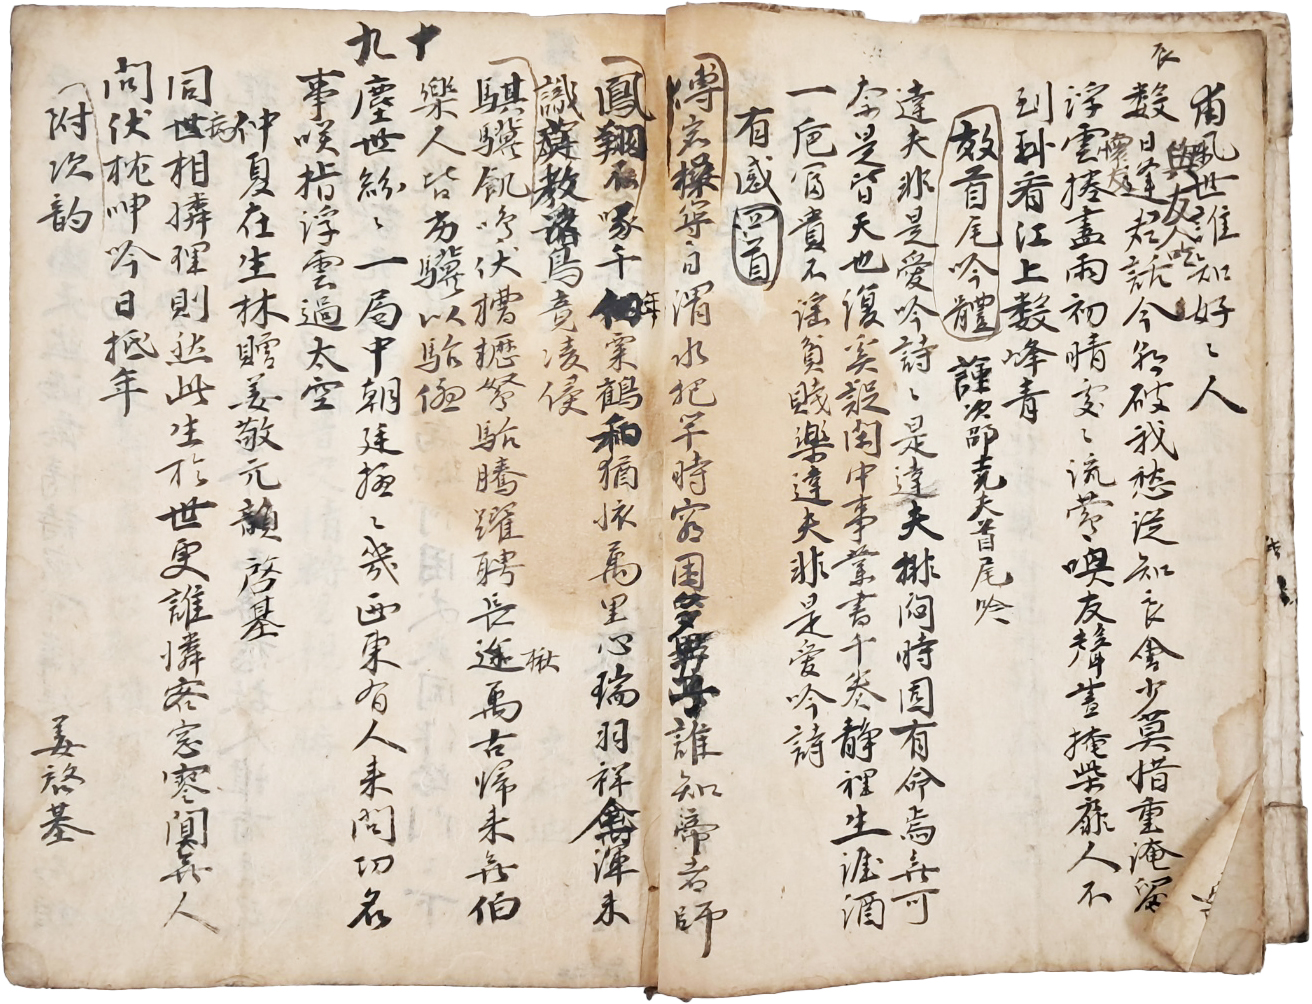 甫風世誰知好〻人
與友人
懷友
數日逢君話今破我愁從知良會少莫惜重淹留
浮雲捲盡雨初晴交〻流鶯喚友聲晝掩柴扉人不
到卧看江上數峰青
效首尾吟體 謹次邵堯夫首尾吟
達夫非是愛吟詩〻是達夫排悶時固有命焉無可
奈是皆天也復奚疑閑中事業書千卷靜裡生涯酒
一巵富貴不淫貧賤樂達夫非是愛吟詩
有感四首
傅岩操築日渭水把竿時窮困誰知帝者師
鳳翔不啄千年粟鶴和猶懷萬里心瑞羽祥禽渾未
識教諸鳥竟凌侵
騏驥飢鳴伏槽櫪駑駘騰躍聘長途萬古歸來無伯
樂人皆為驥以駘
九十
塵世紛〻一局中朝廷擾〻幾西東有人來問功名
事咲指浮雲過太空
仲夏在生林贈姜敬元韻 啓基
同病
世相憐理則然此生於世更誰憐客窓寥闃無人
問伏枕呻吟日抵年
附次韵
姜啓基